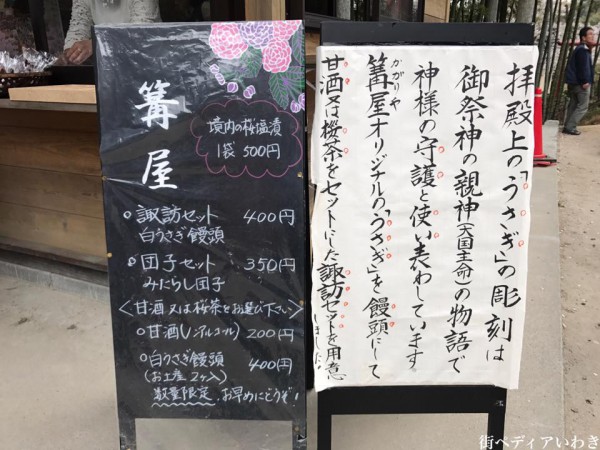 篝屋
境内の桜塩漬
1袋 500円
諏訪セット 400円
白うさぎ饅頭
団子セット 350円
みたらし団子
＜甘酒又は桜茶をお選び下さい＞
甘酒(ノンアルコール) 200円
白うさぎ饅頭 400円
(お土産 2ヶ入)
数量限定、お早めにどうぞ!
拝殿上の「うさぎ」の彫刻は
御祭神の親神(大国主命)の物語で
神様の守護と使い表わしています
かがりや
篝屋オリジナルの「うさぎ」を饅頭にして
甘酒又は桜茶をセットにした諏訪セットを用意
しました!
街ペディアいわき